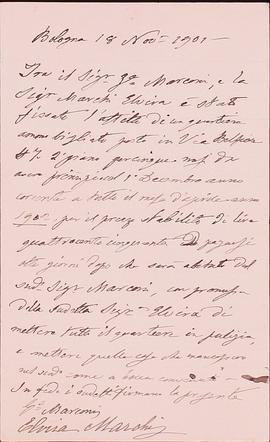 Bologna 18 Nov= 1901-
Tra il Sigr Gmo Marconi, e la
Sigra Marchi Elvira è stato
fissato l'affitto di un quartiere
ammobigliato posto in Via
#7. 2° piano per cinque mesi da
avere principio il 1° Decembre anno
corrente a tutto il mese d'aprile anno
1902 per il prezzo stabilito di lire
quattrocento cinquanta pagarsi
giorni dopo che sarà abitato dal
sudo Sigr Marconi, con promessa
della sudetta Sigra Elvira di
mettere tutto il quartiere in pulizia,
e mettere quelle cose che mancassero
nel sudo come a bocca
In fede i sudetti firmano la presente
Gmo Marconi
Elvira Marchi